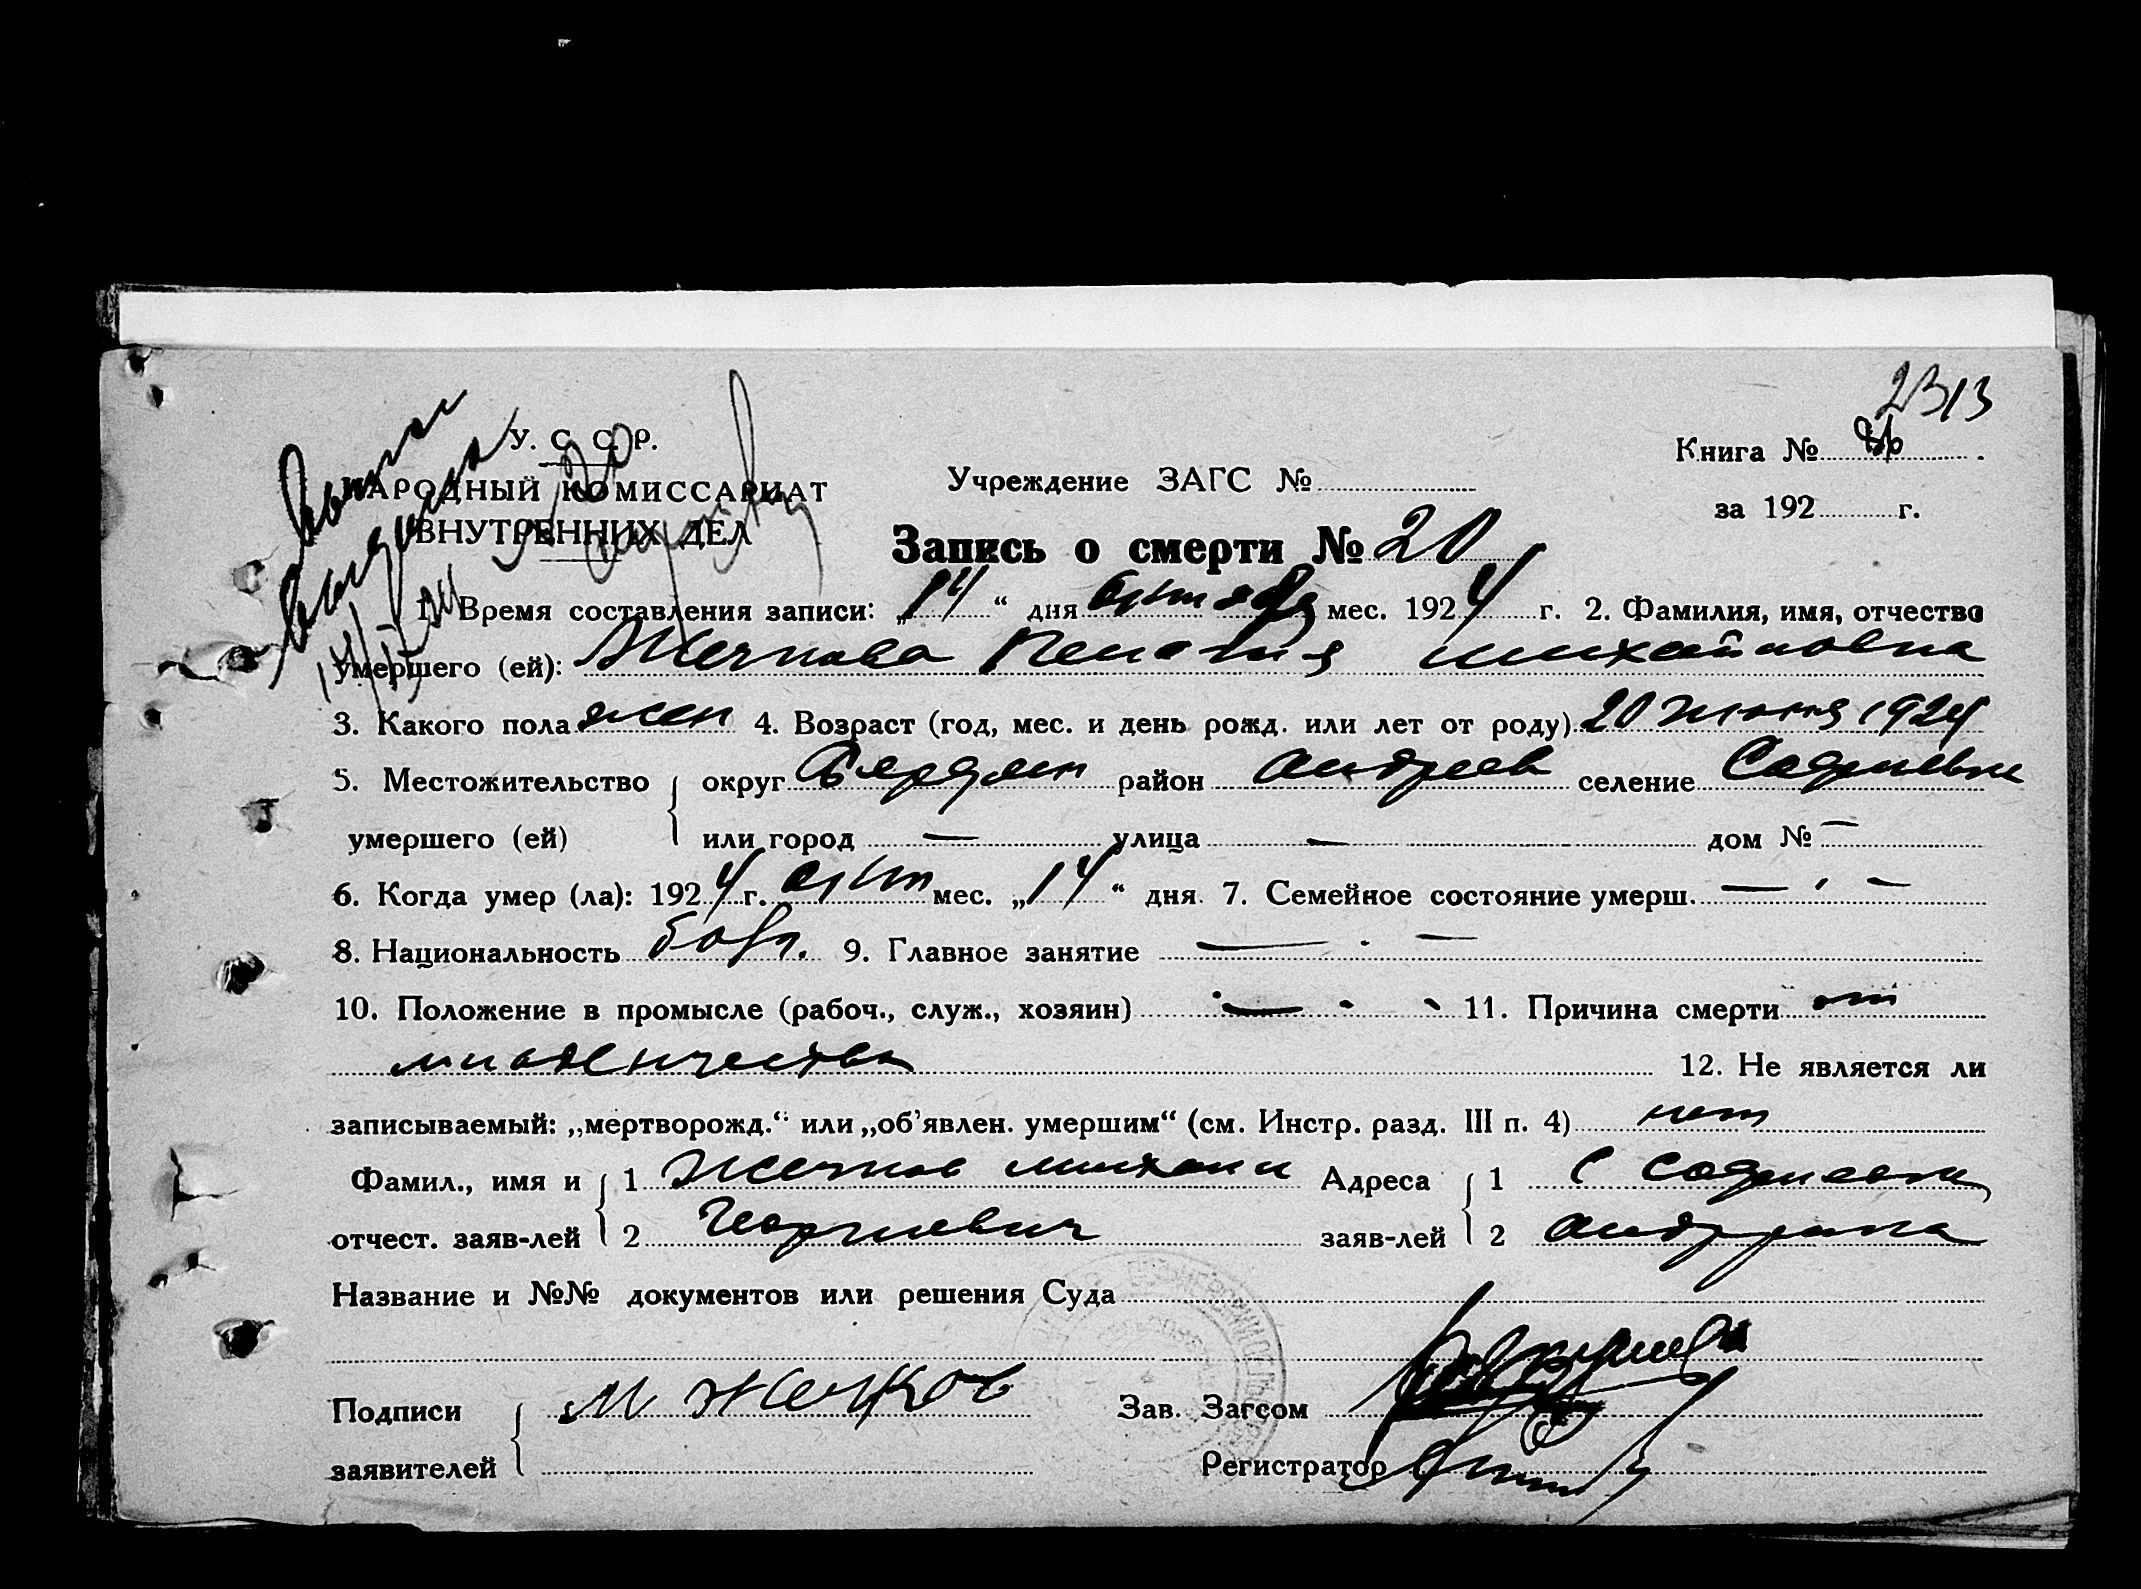 2313
У. С. С. Р.
НАРОДНЫЙ КОМИССАРИАТ
ВНУТРЕННИХ ДЕЛ
Учреждение ЗАГС №
Книга №
за 192 г.
Запись о смерти № 20
1. Время составления записи: „14“ дня октября мес. 1924 г. 2. Фамилия, имя, отчество
умершего (ей): Жечкова Пелагия Михайловна
3. Какого пола жен 4. Возраст (год, мес. и день рожд. или лет от роду) 20 июня 1924
5. Местожительство округ Бердян район Андреев селение
умершего (ей) или город — улица — дом № —
6. Когда умер (ла): 1924 г. окт мес. „14“ дня. 7. Семейное состояние умерш. — . —
8. Национальность болг. 9. Главное занятие — . —
10. Положение в промысле (рабоч., служ., хозяин) . — . 11. Причина смерти от
младенчества 12. Не является ли
записываемый: „мертворожд.“ или „об’явлен. умершим“ (см. Инстр. разд. III п. 4) нет
Фамил., имя и 1 Жечков Михаил Адреса 1 с
отчест. заяв-лей 2 Георгиевич заяв-лей 2
Название и №№ документов или решения Суда
Подписи М Жечков Зав. Загсом
заявителей Регистратор